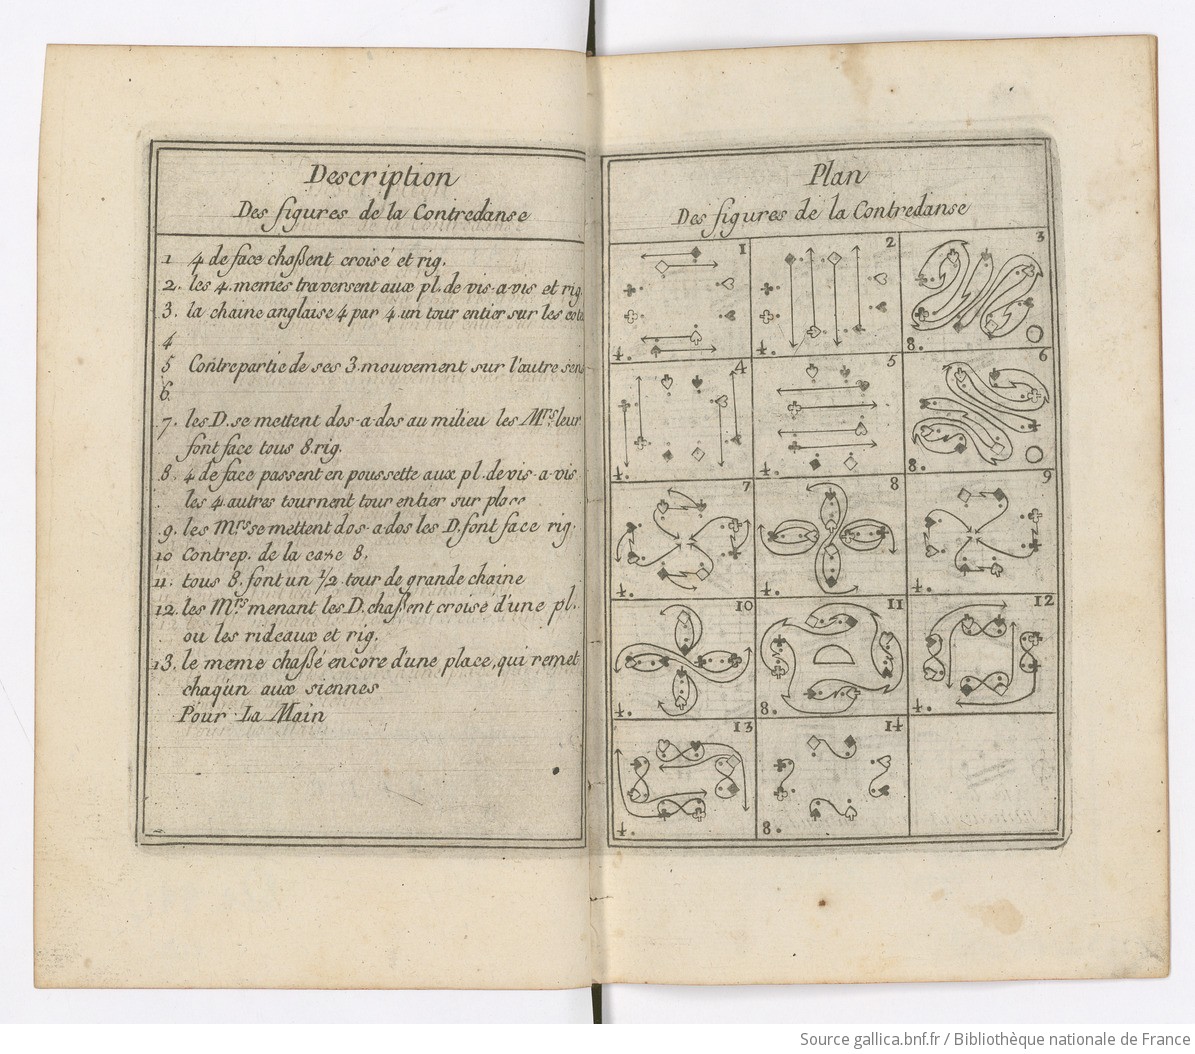 Description
Des figures de la Contredanse
1 4 de face chaßent croisé et rig.
2. les 4. memes traversent aux pl. de vis-a-vis et rig.
3. la chaine anglaise 4 par 4 un tour entier sur les cotés
4
5 Contrepartie de ses 3. mouvement sur l'autre sens
6.
7. les D. se mettent dos-a-dos au milieu les Mrs. leur
font face tous 8. rig.
8. 4 de face passent en poussette aux pl. de vis-a-vis
les 4 autres tournent tour entier sur place
9. les Mrs se mettent dos-a-dos les D. font face rig.
10 Contrep. de la caze 8.
11. tous 8. font un 1/2 tour de grande chaine
12. les Mrs menant les D. chaßent croisé d'une pl.
ou les rideaux et rig.
13. le meme chaßé encore d'une place, qui remet
chaqun aux siennes
Pour La Main
Plan
Des figures de la Contredanse
1 2 3
½. ½. 8.
4 5 6
½. ½. 8.
7 8 9
½. ½. ½.
10 11 12
½. 8. ½.
13 14
½. 8.
Source gallica.bnf.fr / Bibliothèque nationale de France